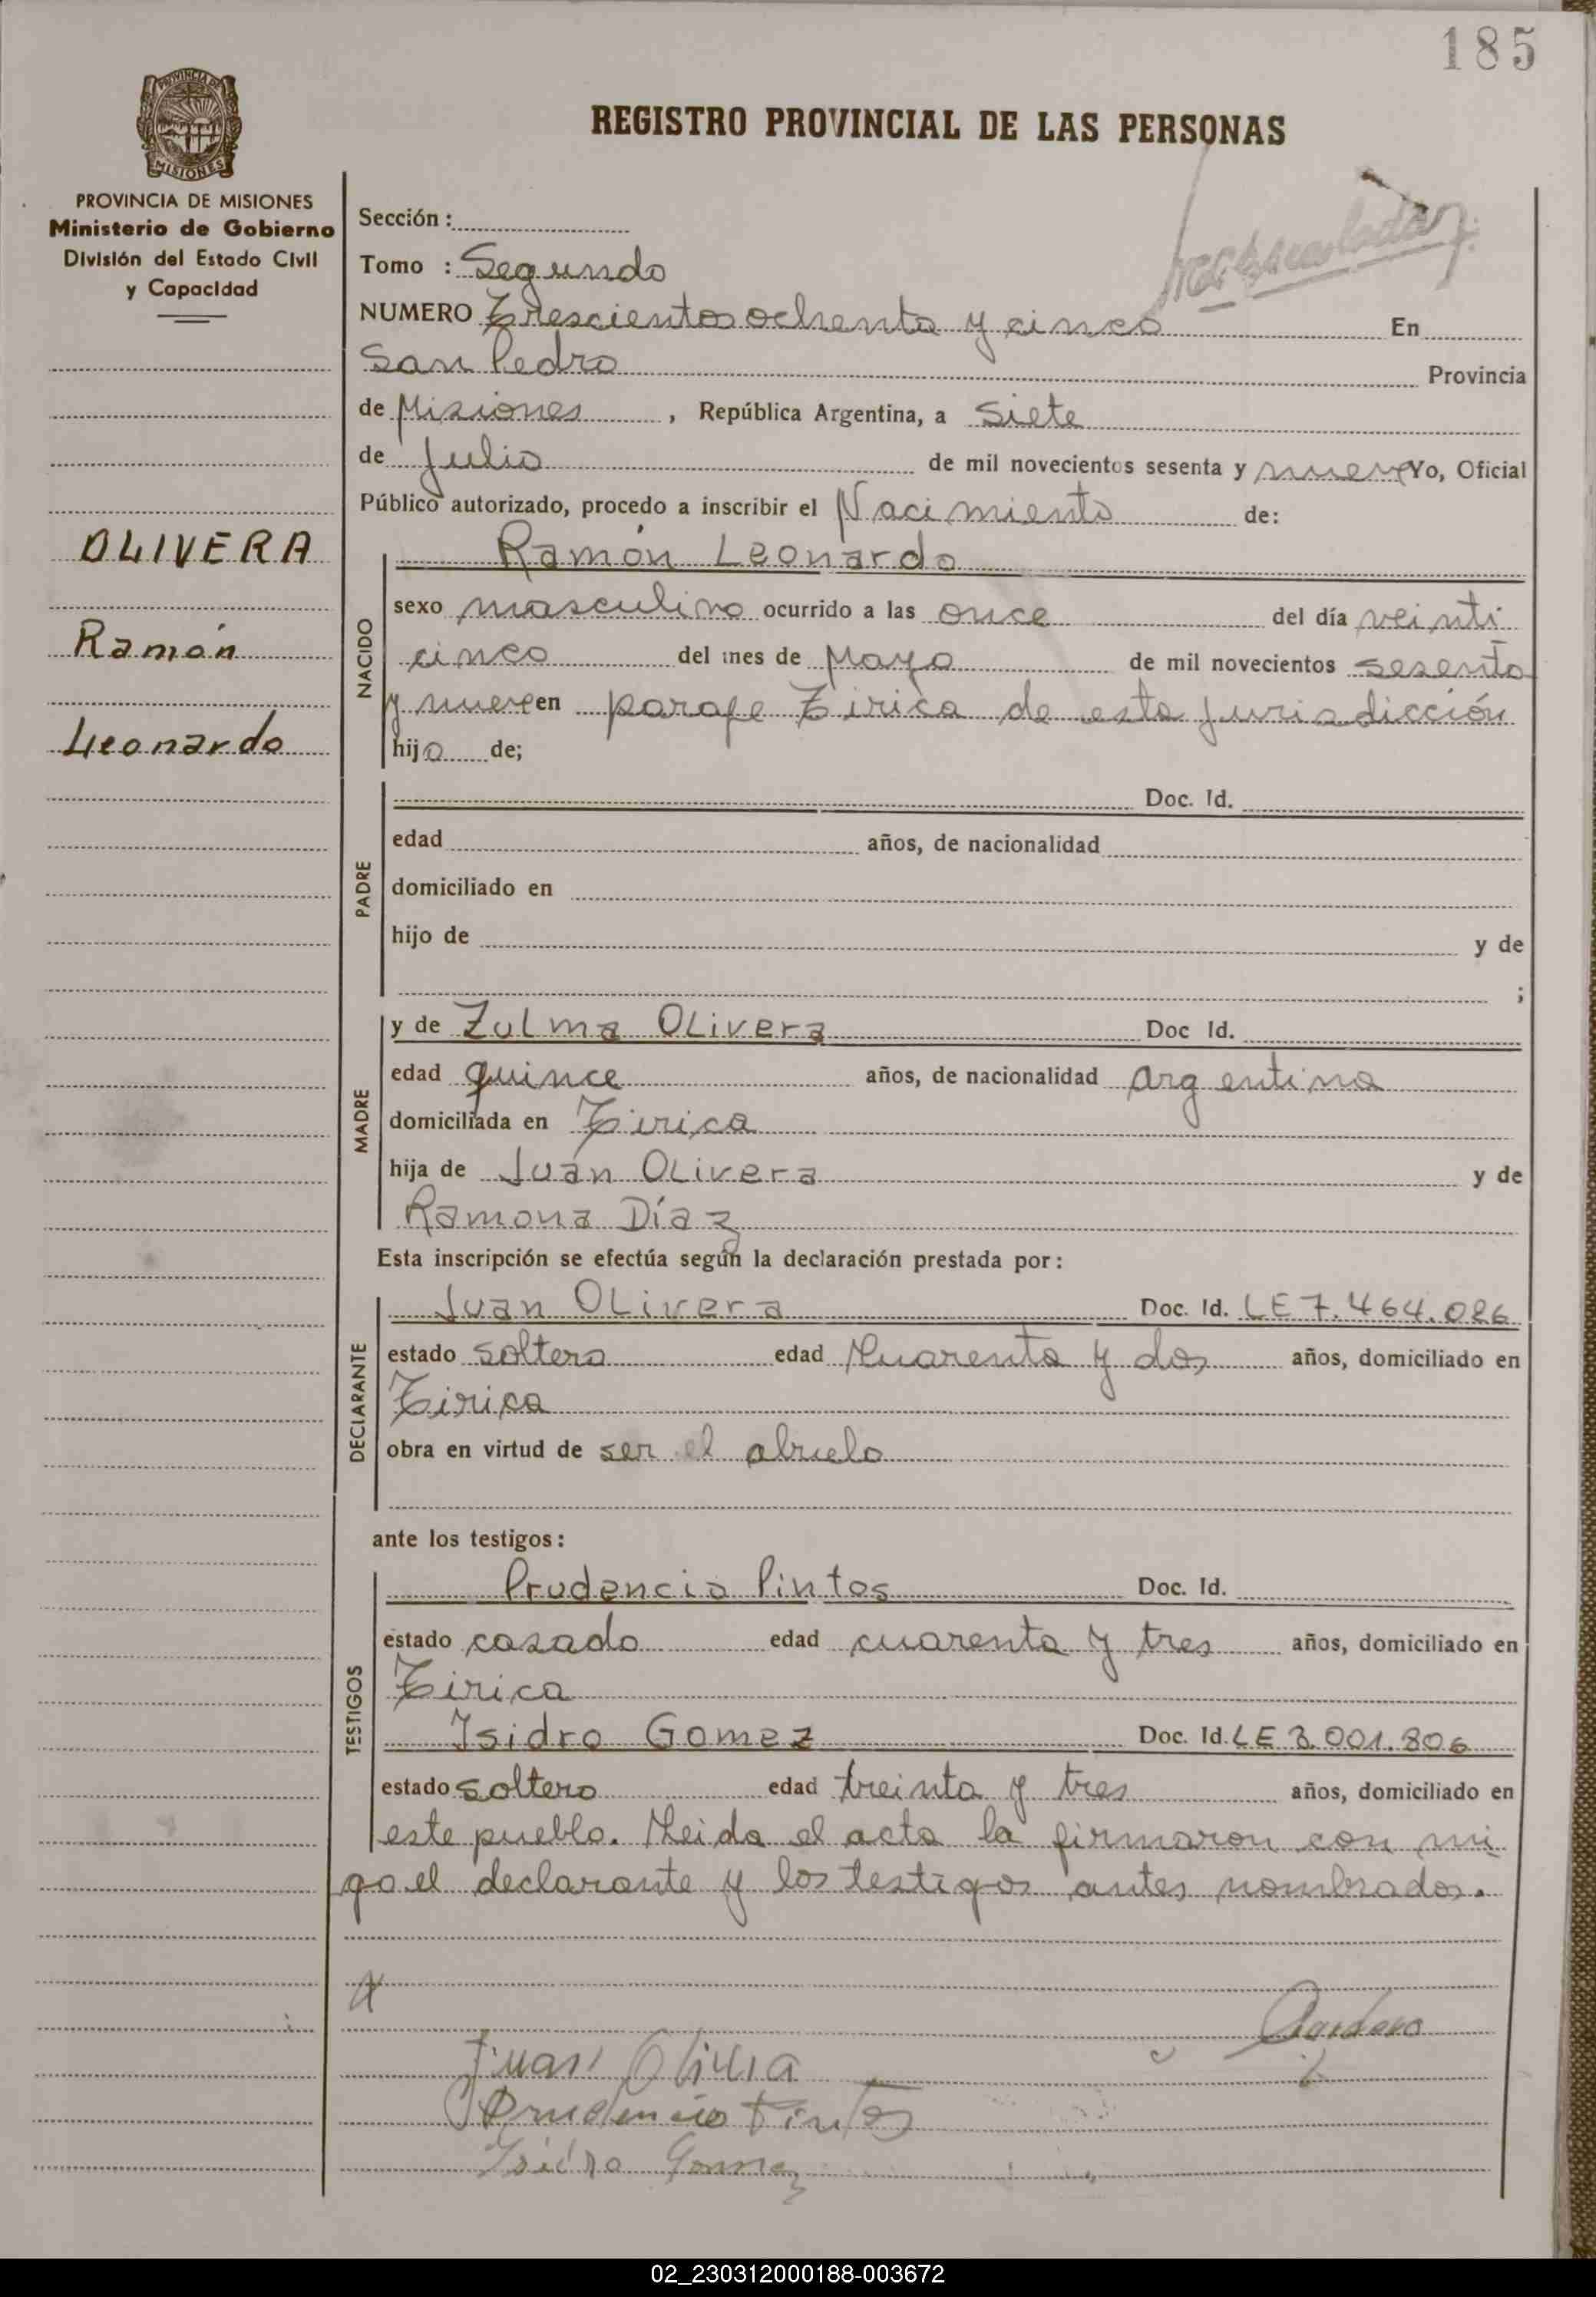 185
REGISTRO PROVINCIAL DE LAS PERSONAS
PROVINCIA DE
MISIONES
PROVINCIA DE MISIONES
Ministerio de Gobierno
División del Estado Civil
y Capacidad
OLIVERA
Ramón
Leonardo
Sección :
Tomo : Segundo
NUMERO Trescientos ochenta y cinco En
San Pedro Provincia
de Misiones , República Argentina, a Siete
de Julio de mil novecientos sesenta y nueve Yo, Oficial
Público autorizado, procedo a inscribir el Nacimiento de:
NACIDO
Ramón Leonardo
sexo masculino ocurrido a las once del día veinti
cinco del mes de Mayo de mil novecientos sesenta
y nueve en paraje Tirica de esta jurisdicción
hijo de;
PADRE
Doc. Id.
edad años, de nacionalidad
domiciliado en
hijo de y de
;
MADRE
y de Zulma Olivera Doc Id.
edad quince años, de nacionalidad argentina
domiciliada en Tirica
hija de Juan Olivera y de
Ramona Díaz
Esta inscripción se efectúa según la declaración prestada por:
DECLARANTE
Juan Olivera Doc. Id. LE 7.464.026
estado soltero edad Cuarenta y dos años, domiciliado en
Tirica
obra en virtud de ser el abuelo
ante los testigos:
TESTIGOS
Prudencio Pintos Doc. Id.
estado casado edad cuarenta y tres años, domiciliado en
Tirica
Isidro Gomez Doc. Id. LE 3.001.806
estado soltero edad treinta y tres años, domiciliado en
este pueblo. Leida el acta la firmaron con mi
go el declarante y los testigos antes nombrados.
Juan Olivia
Prudencio Pintos
Isidro Gomez
02_230312000188-003672